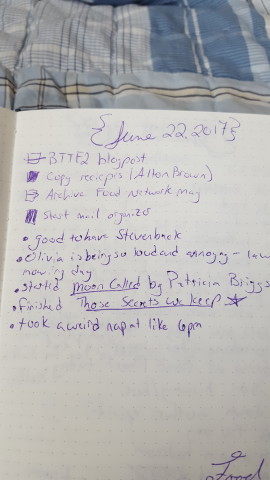 {June 22, 2017}
BTTF2 blogpost
Copy reciepis (Alton Brown)
Archive Food Network mag
Start mail organize
• good to have Steven back
• Olivia is being so loud and annoying - law
mowing day
• started Moon Called by Patricia Briggs
• finished Those Secrets we keep
• took a weird nap at like 6pm